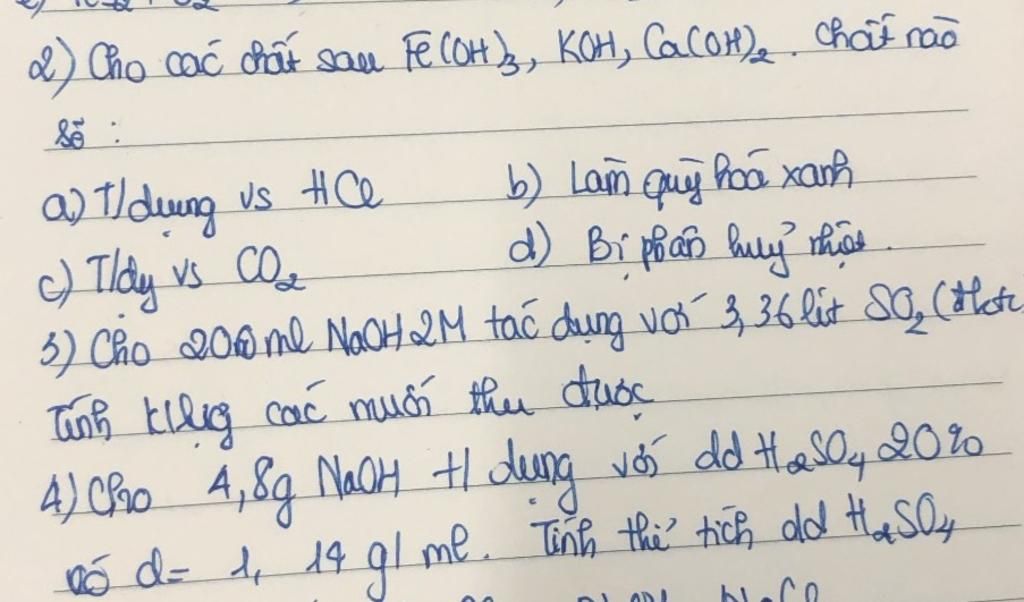 2) Cho các chất sau Fe(OH)3, KOH, Ca(OH)2. Chất nào
sẽ :
a) T/dụng vs HCl b) Làm quỳ hoá xanh
c) T/dụ vs CO2 d) Bị phân huỷ nhiệt.
3) Cho 200ml NaOH 2M tác dụng với 3,36 lít SO2 (đktc
Tính klượg các muối thu được
4) Cho 4,8g NaOH t/ dụng với dd H2SO4 20%
có d = 1,14 g/ml. Tính thể tích dd H2SO4